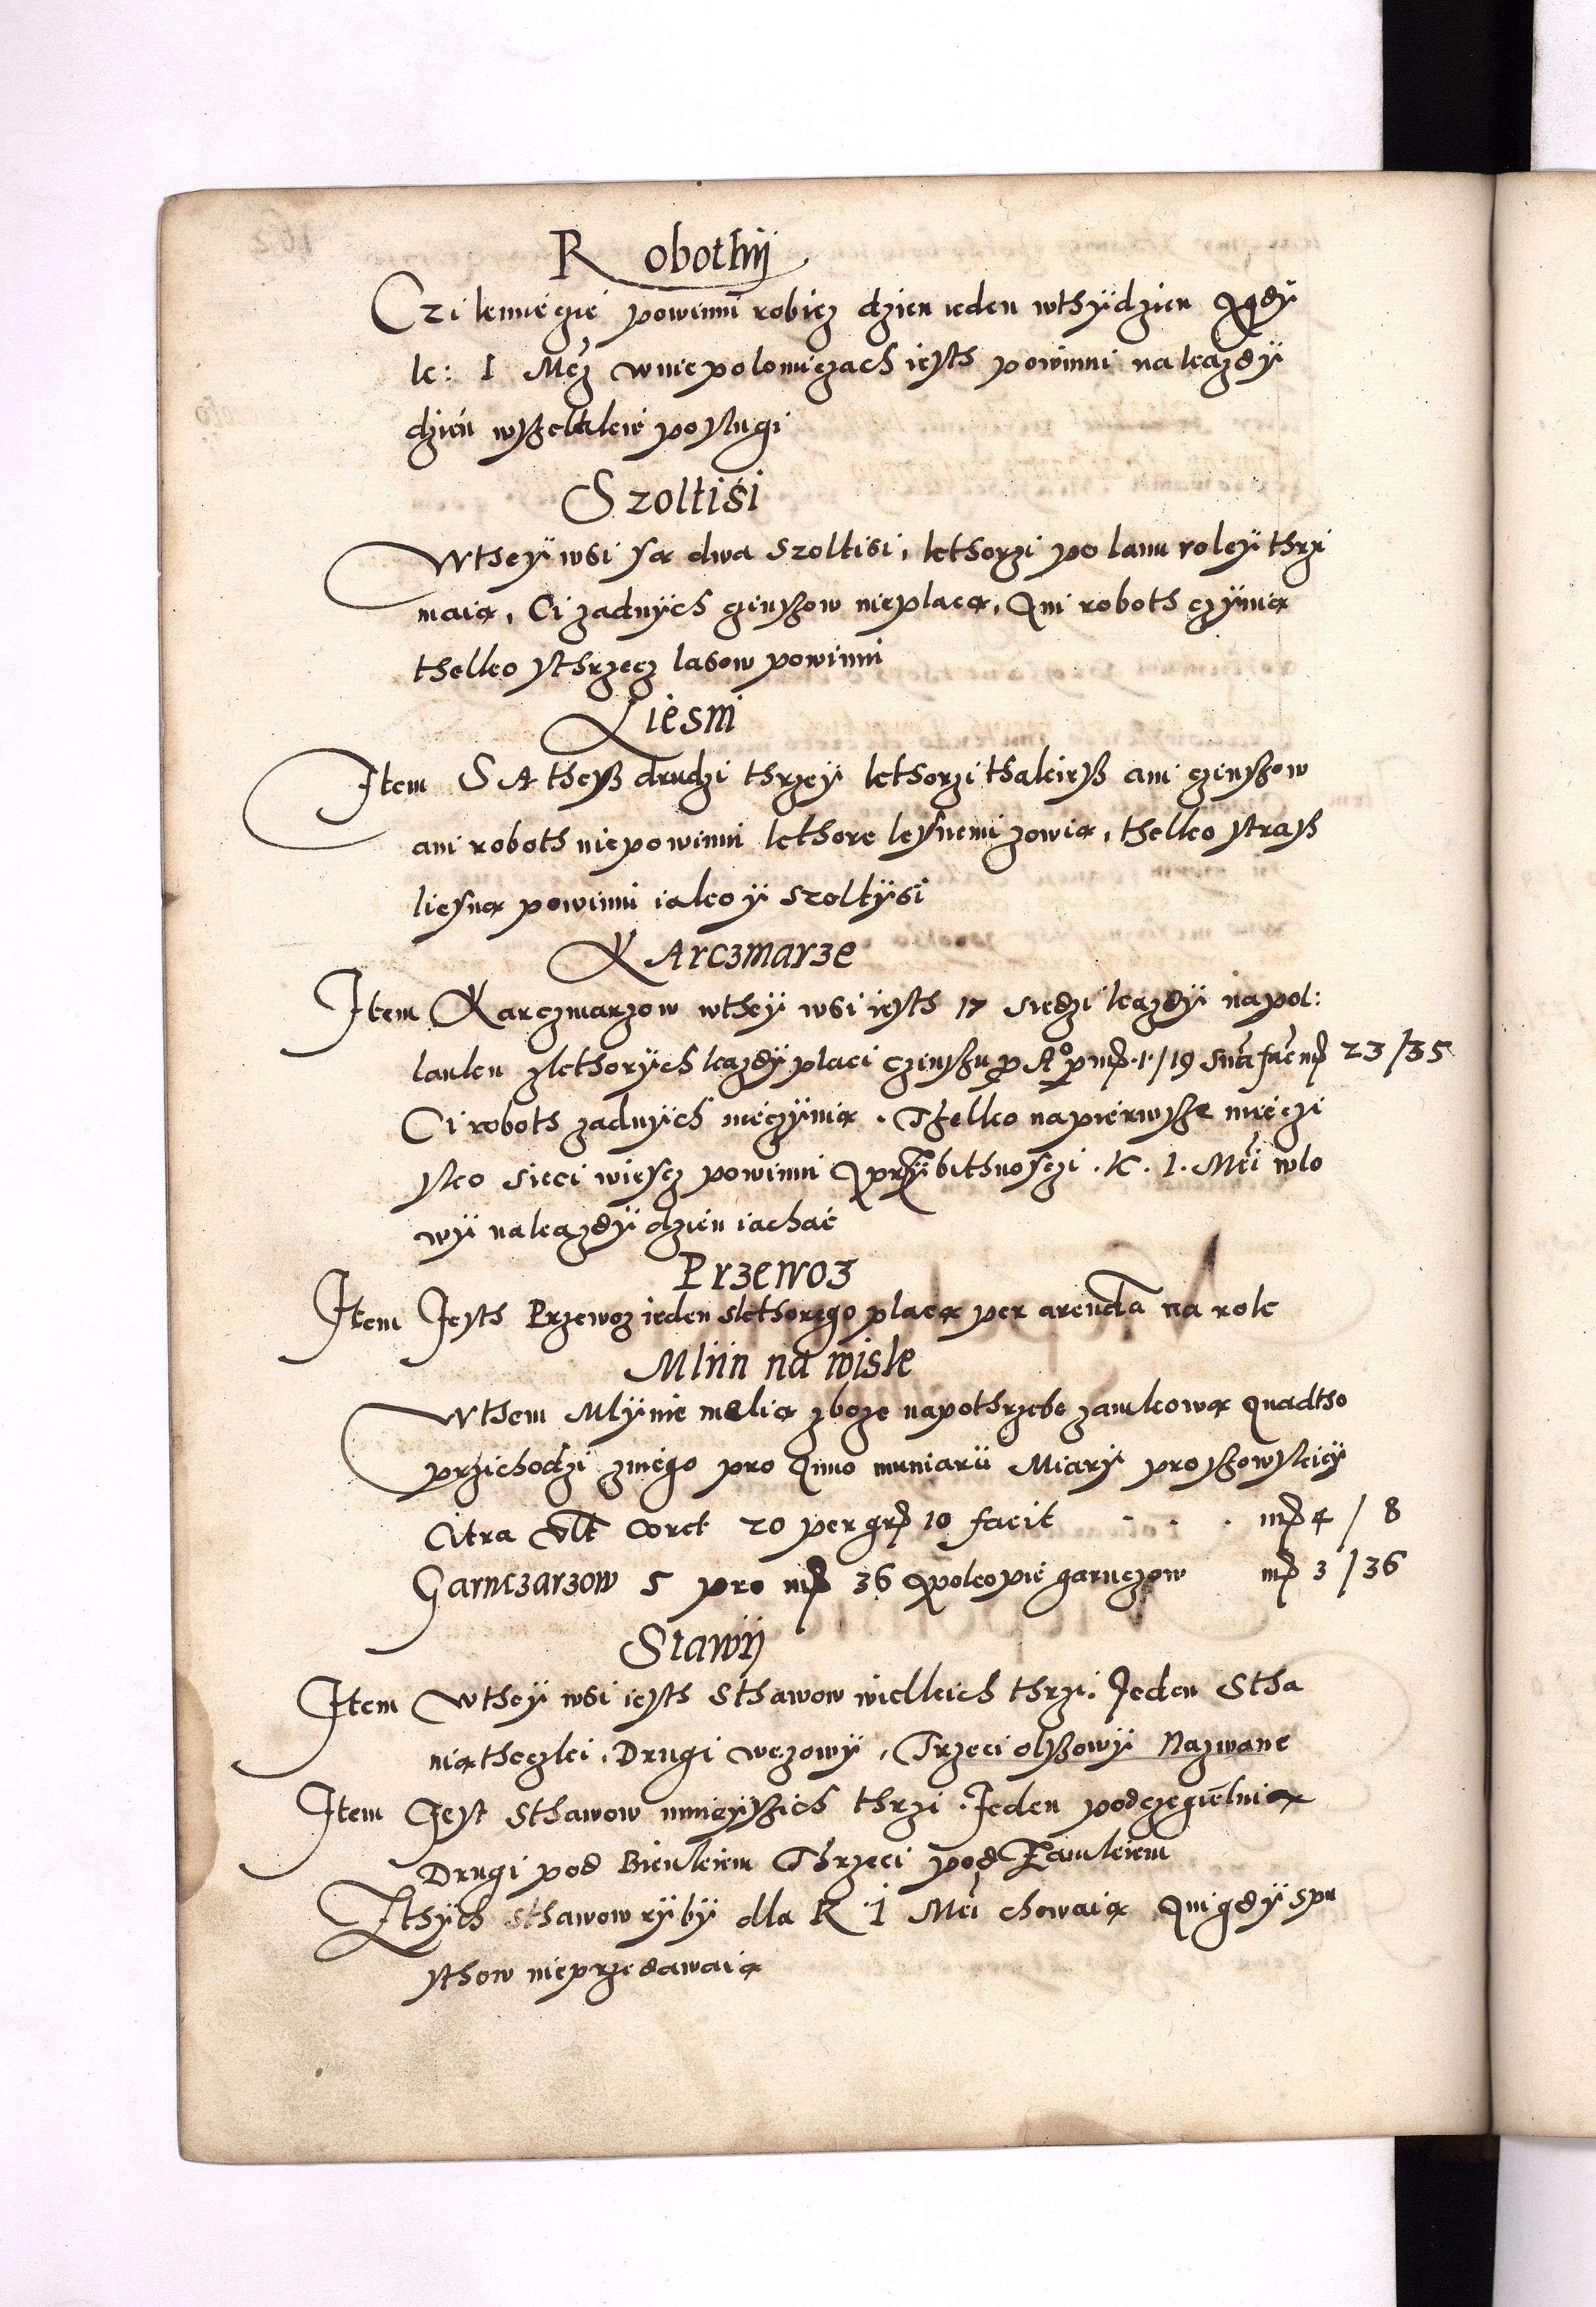 Robothÿ
Czi kmiegie powinni robicz dzien ieden wthÿdzien A gdÿ
k: I Mcz wniepolomiczach iesth powinni na kazdÿ
dzien wszelakie poslugi
Szoltisi
Wtheÿ wsi są dwa szoltisi, kthorzi po lanu roleÿ thrzi
maią, Ci zadnÿch czinszow nieplacą, Ani roboth czÿnią
thelko sthrzecz lasow powinni
Liesni
Item SA thesz drudzi thrzeÿ kthorzi thakiesz ani czinszow
ani roboth niepowinni kthore lesnemi zowią, thelko strasz
liesną powinni iako ÿ szoltÿsi
KArczmarze
Item Karczmarzow wtheÿ wsi iesth 17 siedzi kazdÿ na pol:
lanku zkthorÿch kazdÿ placi czinszu p Aº p mp. 1/19 Suma facit mp 23/35
Ci roboth zadnÿch nieczÿnią. Thelko napierwsze nieczi
sko sieci wiescz powinni A przÿ bithnosczi. K. I. Mci wlo
wÿ nakazdÿ dzien iachać
Przewoz
Item Jesth Przewoz ieden skthorego placą per arendam na rok
Mlin na wisle
Wthem Mlÿnie melią zboze napothrzebe zamkową A nadtho
przichodzi zniego pro Anno muniarii Miarÿ proszowskieÿ
Citra vlt Coret 20 per grp 10 facit . . . mp 4 / 8
Garnczarzow 5 pro mp 36 A po kopie garnczow mp 3 / 36
Stawÿ
Item wtheÿ wsi iesth Sthawow wielkich thrzi. Jeden Stha
niątheczki, Drugi wezowÿ, Trzeci olszowÿ Nazwane
Item Jest Sthawow mnieÿszich thrzi. Jeden podczegielnią
Drugi pod Bienkiem Thrzeci pod Zamkiem
Zthÿch sthawow rÿbÿ dla K I Mci chowaią A nigdÿ spu
sthow nieprzedawaią